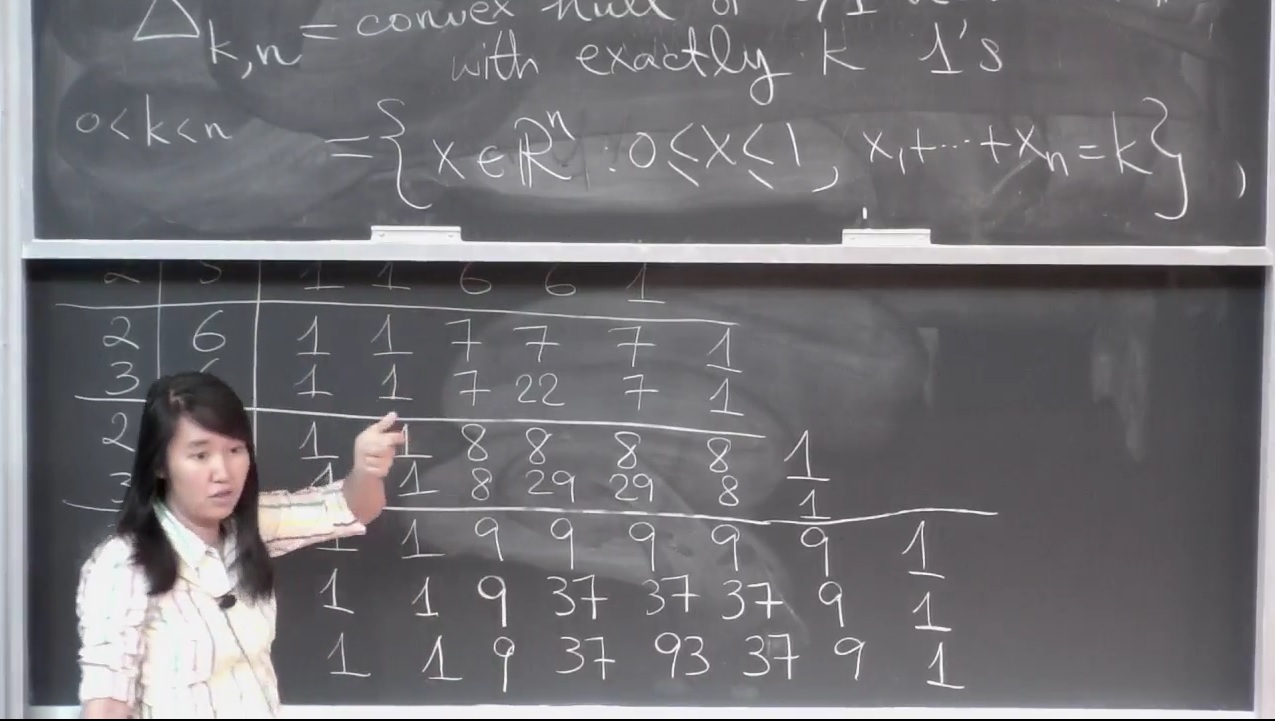 Δ_{k,n} = convex hull of
with exactly k 1's
0<k<n = {x ∈ ℝⁿ : 0 ≤ x ≤ 1, x₁+⋯+xₙ = k},
2 5 1 1 6 6 1
2 6 1 1 7 7 7 1
3 1 1 7 22 7 1
2 1 1 8 8 8 8 1
3 1 1 8 29 29 8 1
1 1 9 9 9 9 9 1
1 1 9 37 37 37 9 1
1 1 9 37 93 37 9 1